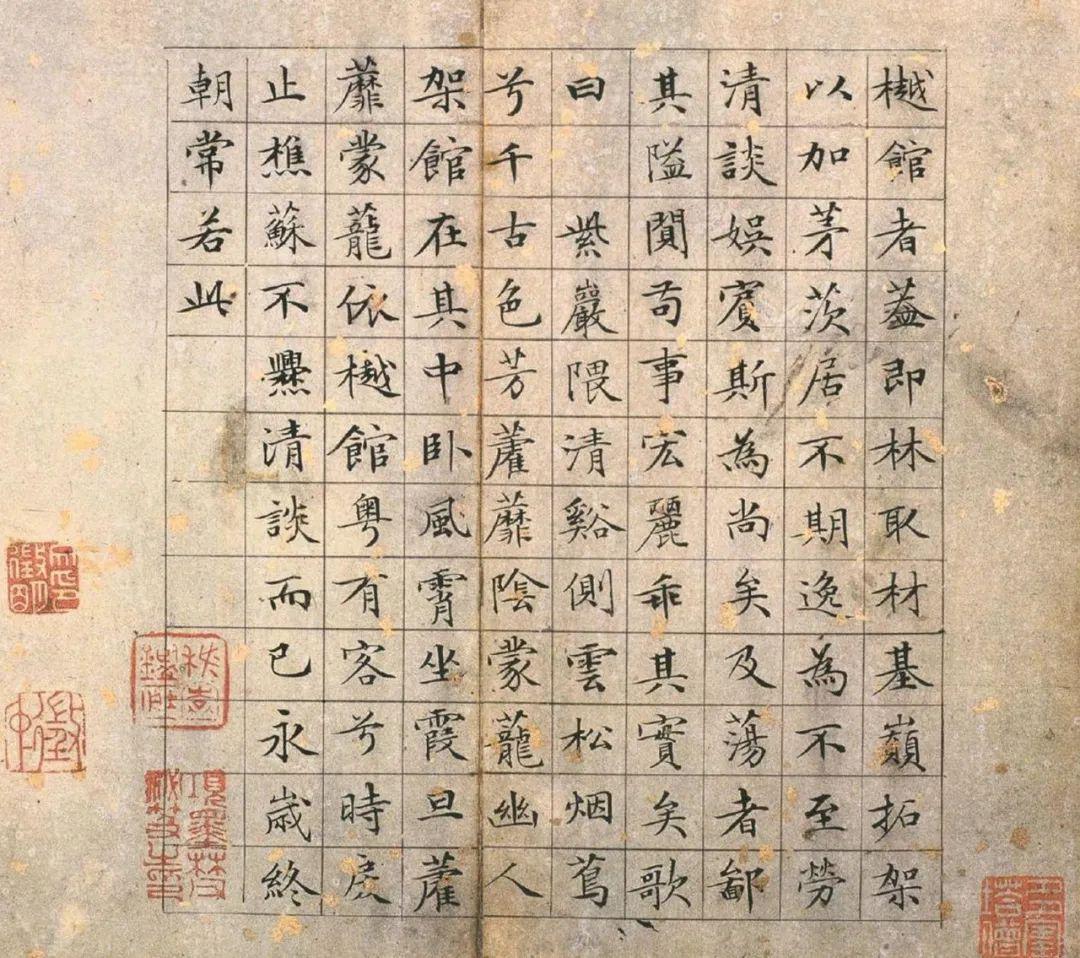 樾館者葢即林取材基巔拓架
以加茅茨居不期逸為不至勞
清談娛賓斯為尚矣及蕩者鄙
其隘閴苟事宏麗乖其實矣歌
曰 紫巖隈清谿側雲松烟蔦
兮千古色芳藿蘼陰蒙蘢幽人
架館在其中卧風霄坐霞旦藿
蘼蒙蘢依樾館粤有客兮時戾
止樵蘇不爨清談而已永歲終
朝常若此
項墨林父祕笈之印